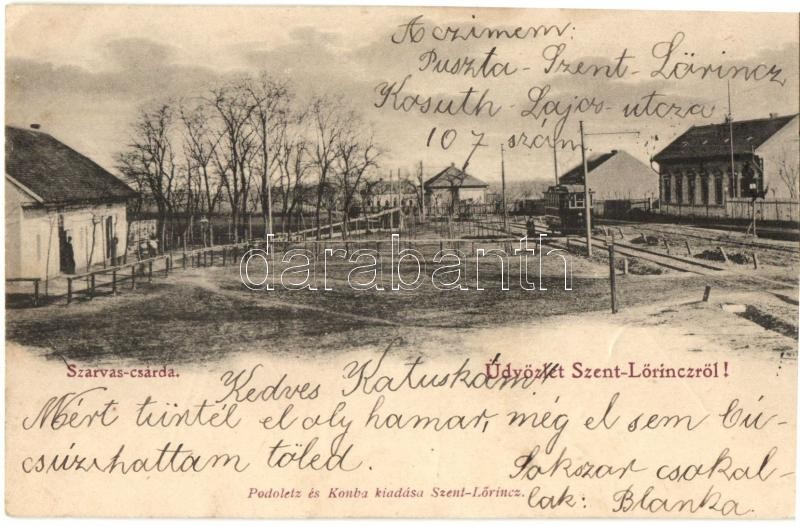 A czimem:
Puszta-Szent-Lörincz
Kosuth-Lajos-utcza
107 szám
darabanth
Szarvas-csárda.
Üdvözlet Szent-Lőrinczről!
Kedves Katuskám!
Mért tüntél el oly hamar, még el sem bú-
csúzhattam töled.
Sokszor csokol-
lak: Blanka.
Podoletz és Konba kiadása Szent-Lőrincz.